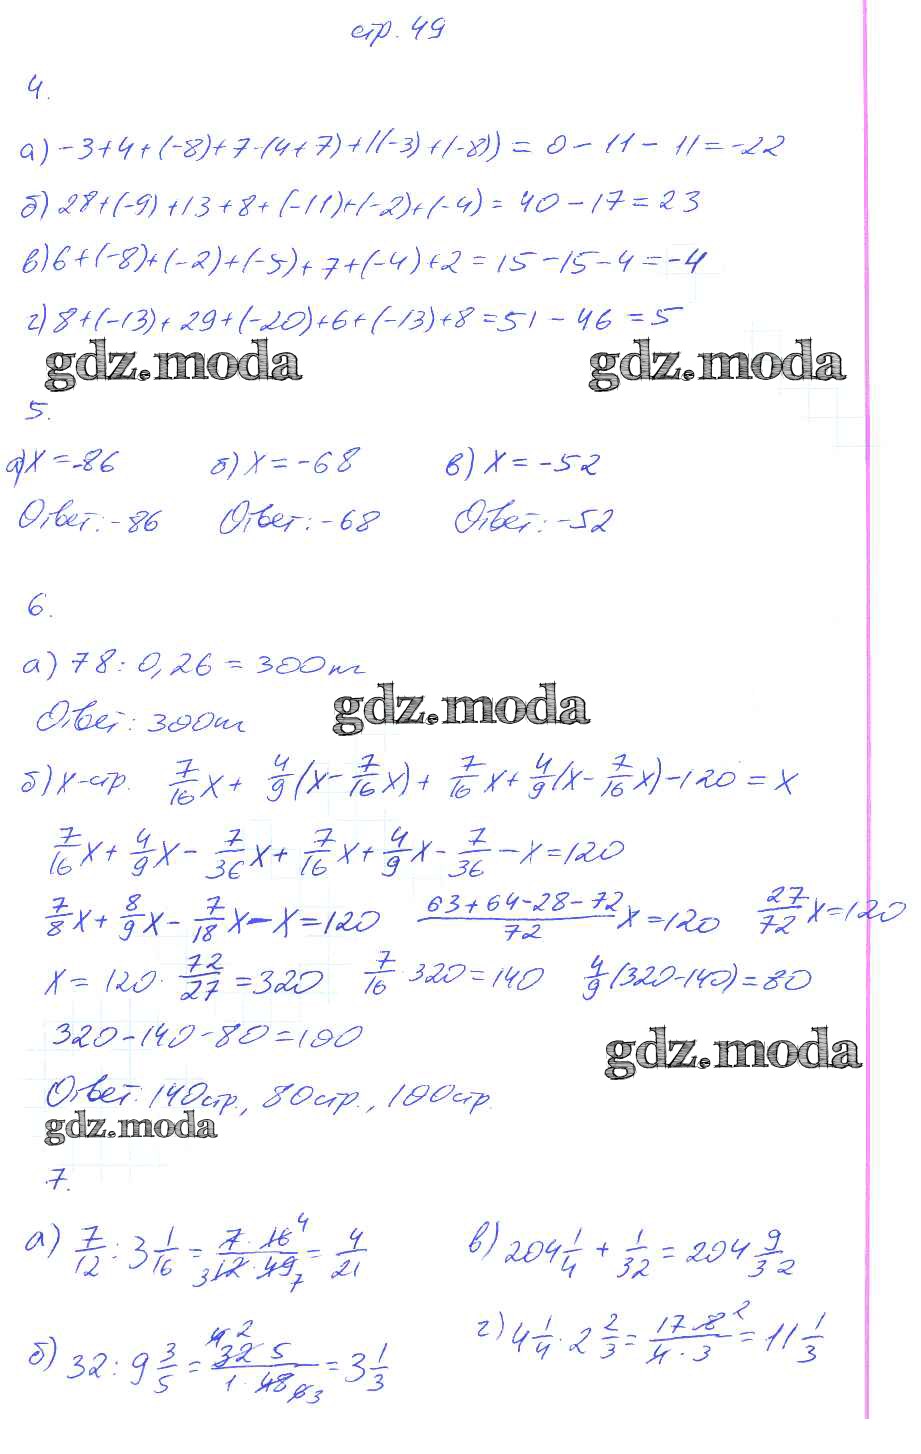 стр. 49
4.
а) -3+4+(-8)+7-(4+7)+((-3)+(-8)) = 0-11-11=-22
б) 28+(-9)+13+8+(-11)+(-2)+(-4)=40-17=23
в) 6+(-8)+(-2)+(-5)+7+(-4)+2=15-15-4=-4
г) 8+(-13)+29+(-20)+6+(-13)+8=51-46=5
gdz.moda gdz.moda
5.
а) x=-86 б) x=-68 в) x=-52
Ответ: -86 Ответ: -68 Ответ: -52
6.
а) 78:0,26=300т
Ответ: 300т
gdz.moda
б) x-стр. 7/16x+ 4/9(x-7/16x)+ 7/16x+4/9(x-7/16x)-120=x
7/16x+4/9x-7/36x+7/16x+4/9x-7/36-x=120
7/8x+8/9x-7/18x-x=120 63+64-28-72/72x=120 27/72x=120
x=120·72/27=320 7/16·320=140 4/9(320-140)=80
320-140-80=100
gdz.moda
Ответ: 140стр., 80стр., 100стр.
gdz.moda
7.
а) 7/12:3 1/16=7·16 4/3 12·49 7=4/21 в) 204 1/4+1/32=204 9/32
б) 32:9 3/5=4 2 32 5/1·48 6 3=3 1/3 г) 4 1/4·2 2/3=17·8 2/4·3=11 1/3